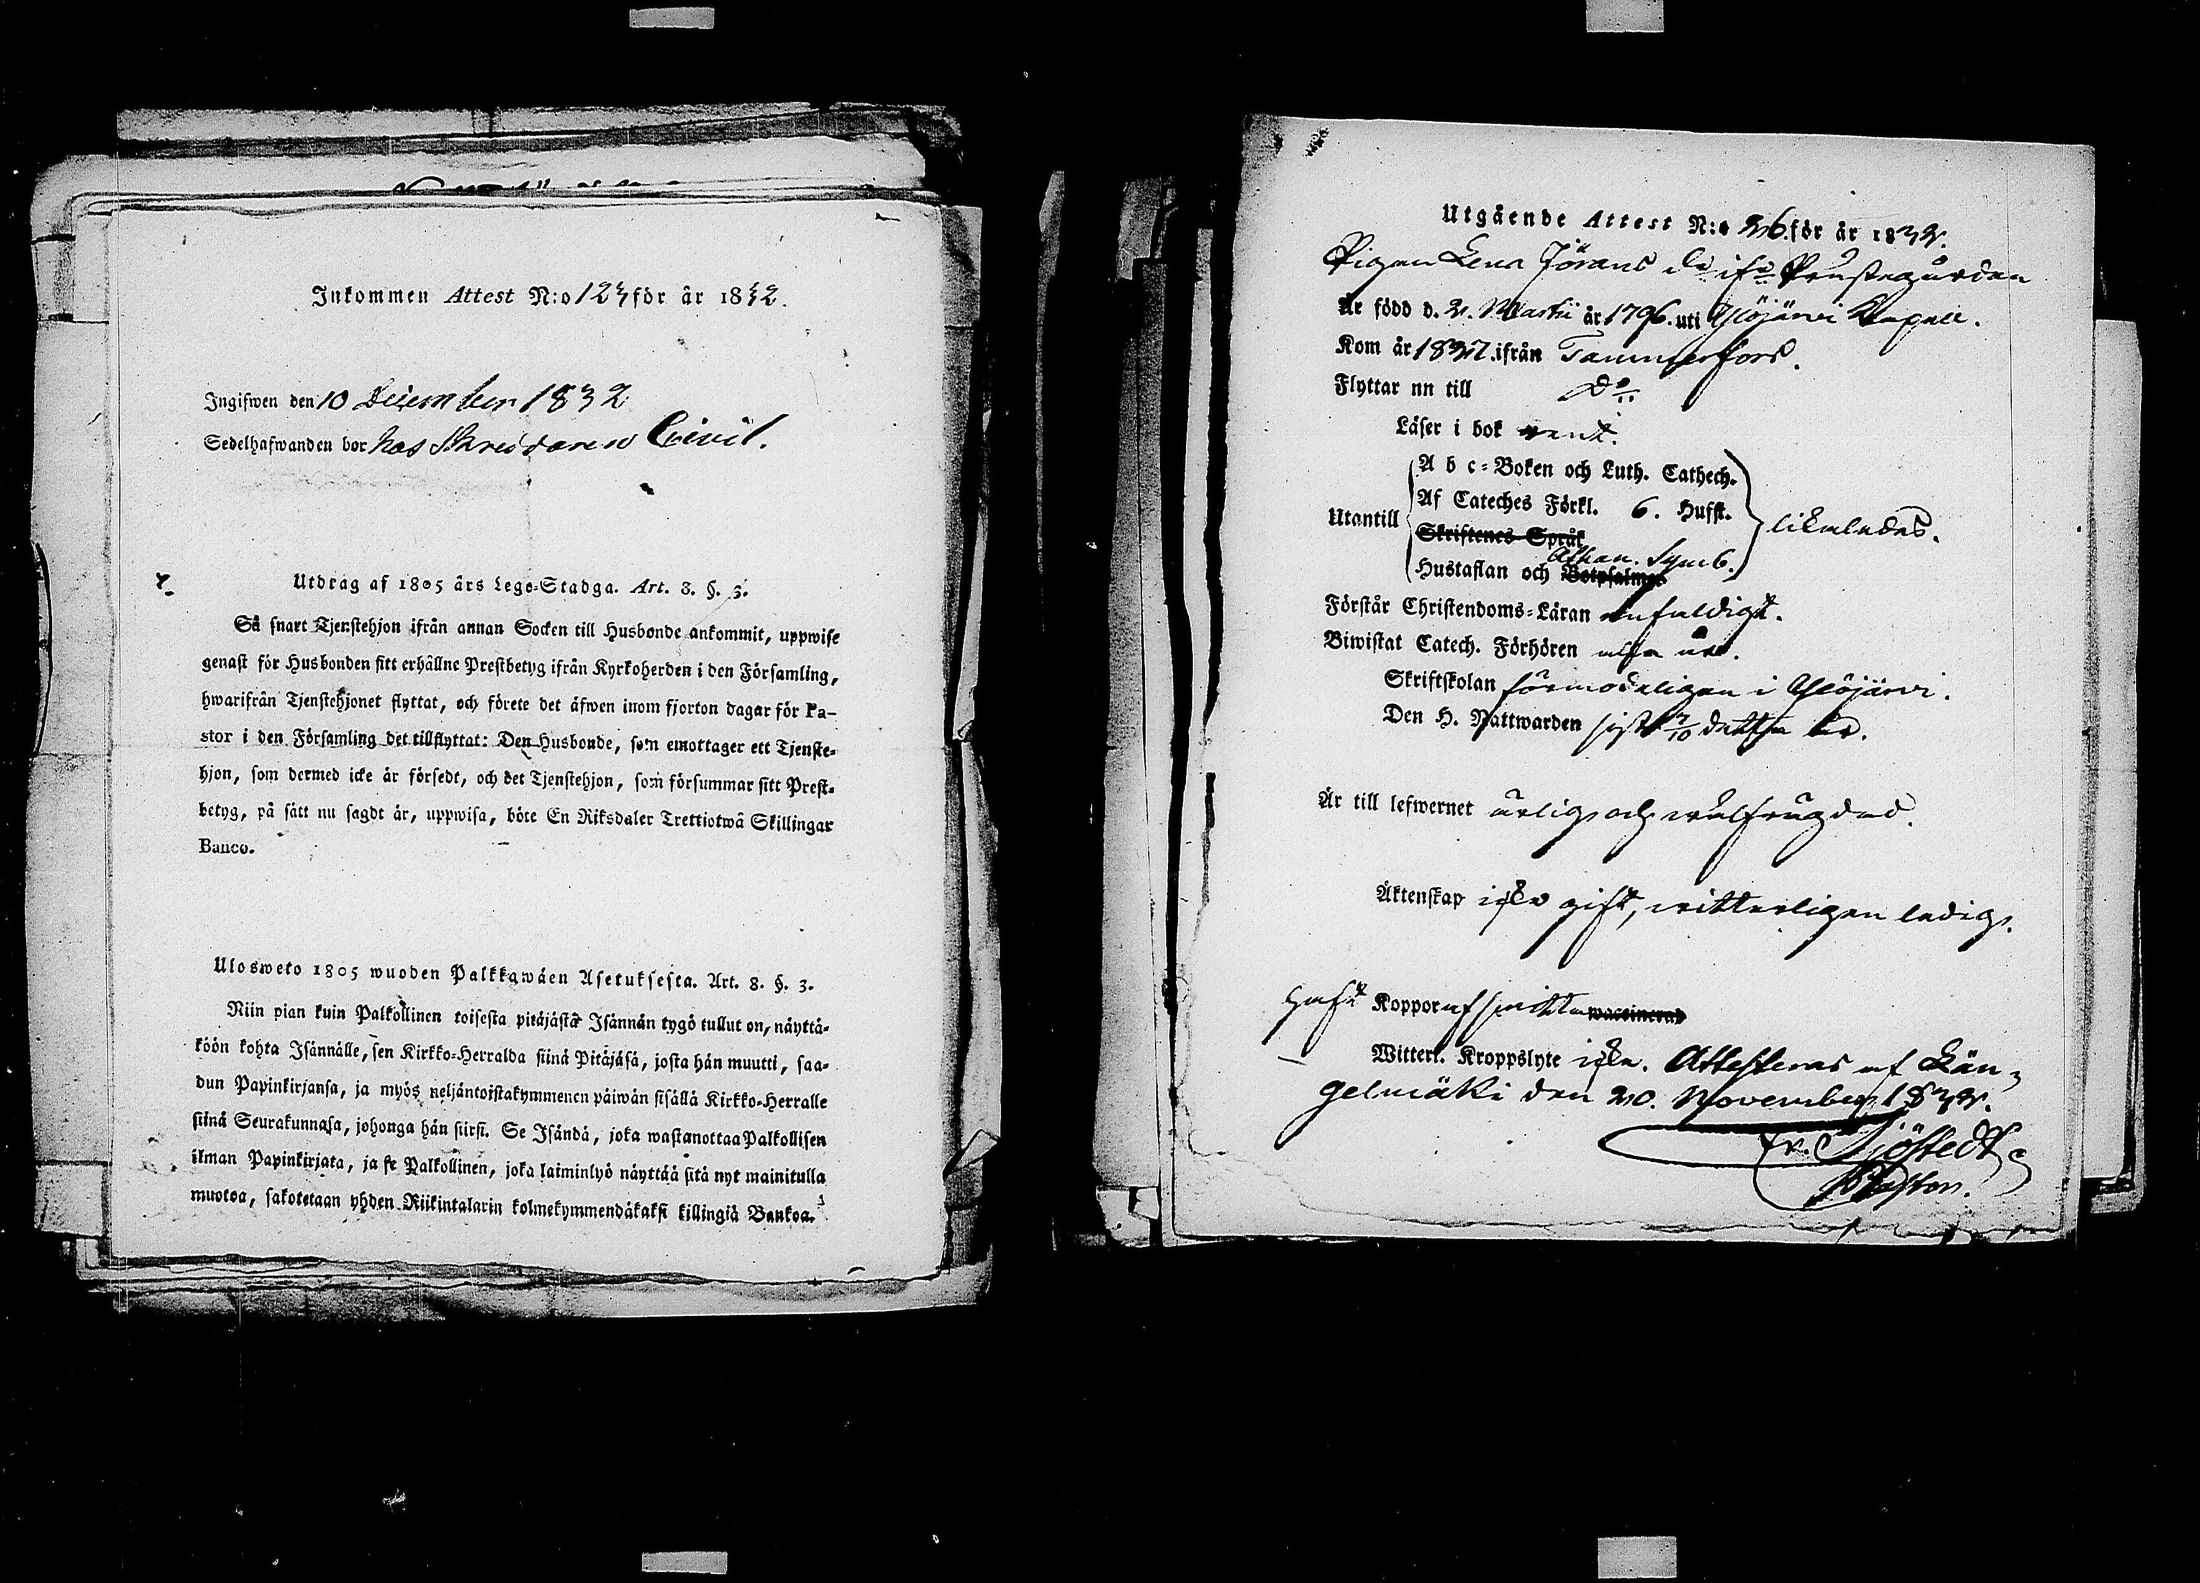 Inkommen Attest N:o 123 för år 1832.
Ingifwen den 10 December 1832
Sedelhafwanden bor hos Skreddaren Civil.
Utdrag af 1805 års Lego-Stadga. Art. 8. §. 3.
Så snart Tjenstehjon ifrån annan Socken till Husbonde ankommit, uppwise
genast för Husbonden sitt erhållne Prestbetyg ifrån Kyrkoherden i den Församling,
hwarifrån Tjenstehjonet flyttat, och förete det äfwen inom fjorton dagar för Pa-
stor i den Församling det tillflyttat: Den Husbonde, som emottager ett Tjenste-
hjon, som dermed icke är försedt, och det Tjenstehjon, som försummar sitt Prest-
betyg, på sätt nu sagdt är, uppwisa, böte En Riksdaler Trettiotwå Skillingar
Banco.
Ulosweto 1805 wuoden Palkkawäen Asetuksesta. Art. 8. §. 3.
Niin pian kuin Palkollinen toisesta pitäjästä Isännän tygö tullut on, näyttä-
köön kohta Isännälle, sen Kirkko-Herralda siinä Pitäjäsä, josta hän muutti, saa-
dun Papinkirjansa, ja myös neljäntoistakymmenen päiwän sisällä Kirkko-Herralle
siinä Seurakunnasa, johonga hän siirsi. Se Isändä, joka wastanottaa Palkollisen
ilman Papinkirjata, ja se Palkollinen, joka laiminlyö näyttää sitä nyt mainitulla
muotoa, sakotetaan yhden Riikintalarin kolmekymmendäkaksi killingiä Bankoa.
Utgående Attest N:o 26. för år 1832.
Pigan Lena Jörans dr ifr. Prustegården
Är född d. 2. Martii år 1796. uti Ylöjärvi Kapell.
Kom år 1827. ifrån Tammerfors.
Flyttar nn till Do
Läser i bok rent.
Utantill
A b c-Boken och Luth. Cathech.
Af Cateches Förkl. 6. Hufst.
Skriftenes Språk
Athan. Symb.
Hustaflan och Botpsalmer
likaledes.
Förstår Christendoms-Läran enfaldigt.
Biwistat Catech. Förhören alla år.
Skriftskolan förmodeligen i Ylöjärvi.
Den H. Nattwarden sist 7/10 detta år.
Är till lefwernet ärlig och wälfrägdad.
Äktenskap icke gift, witterligen ledig.
haft Koppor af smitta waccinerad
Witterl. Kroppslyte icke. Attesteras af Län-
gelmäki den 20. November 1832.
Fr. Sjöstedt
Pastor.